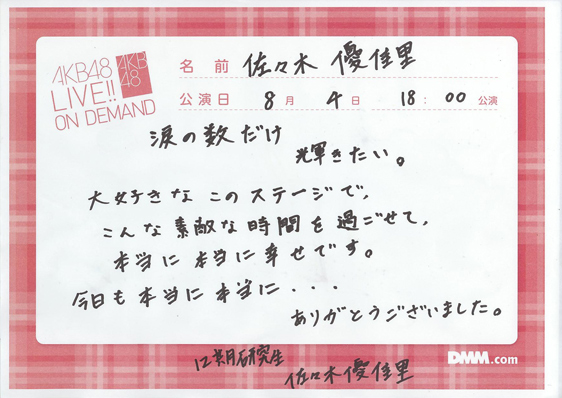 AKB48
LIVE!!
ON DEMAND
AKB
48
名前 佐々木 優佳里
公演日 8月 4日 18:00公演
涙の数だけ
輝きたい。
大好きな このステージで、
こんな素敵な時間を過ごせて、
本当に本当に幸せです。
今日も本当に本当に・・・
ありがとうございました。
12期研究生
佐々木優佳里
DMM.com